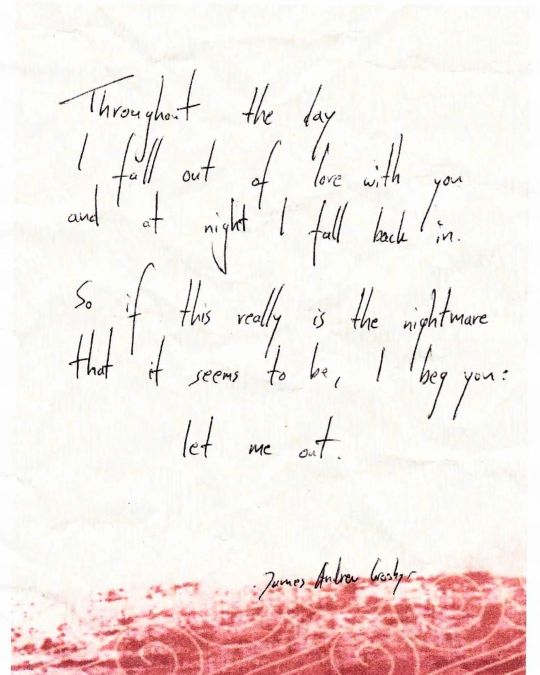 Throughout the day
I fall out of love with you
and at night I fall back in.
So if this really is the nightmare
that it seems to be, I beg you:
let me out.
James Andrew Crosby